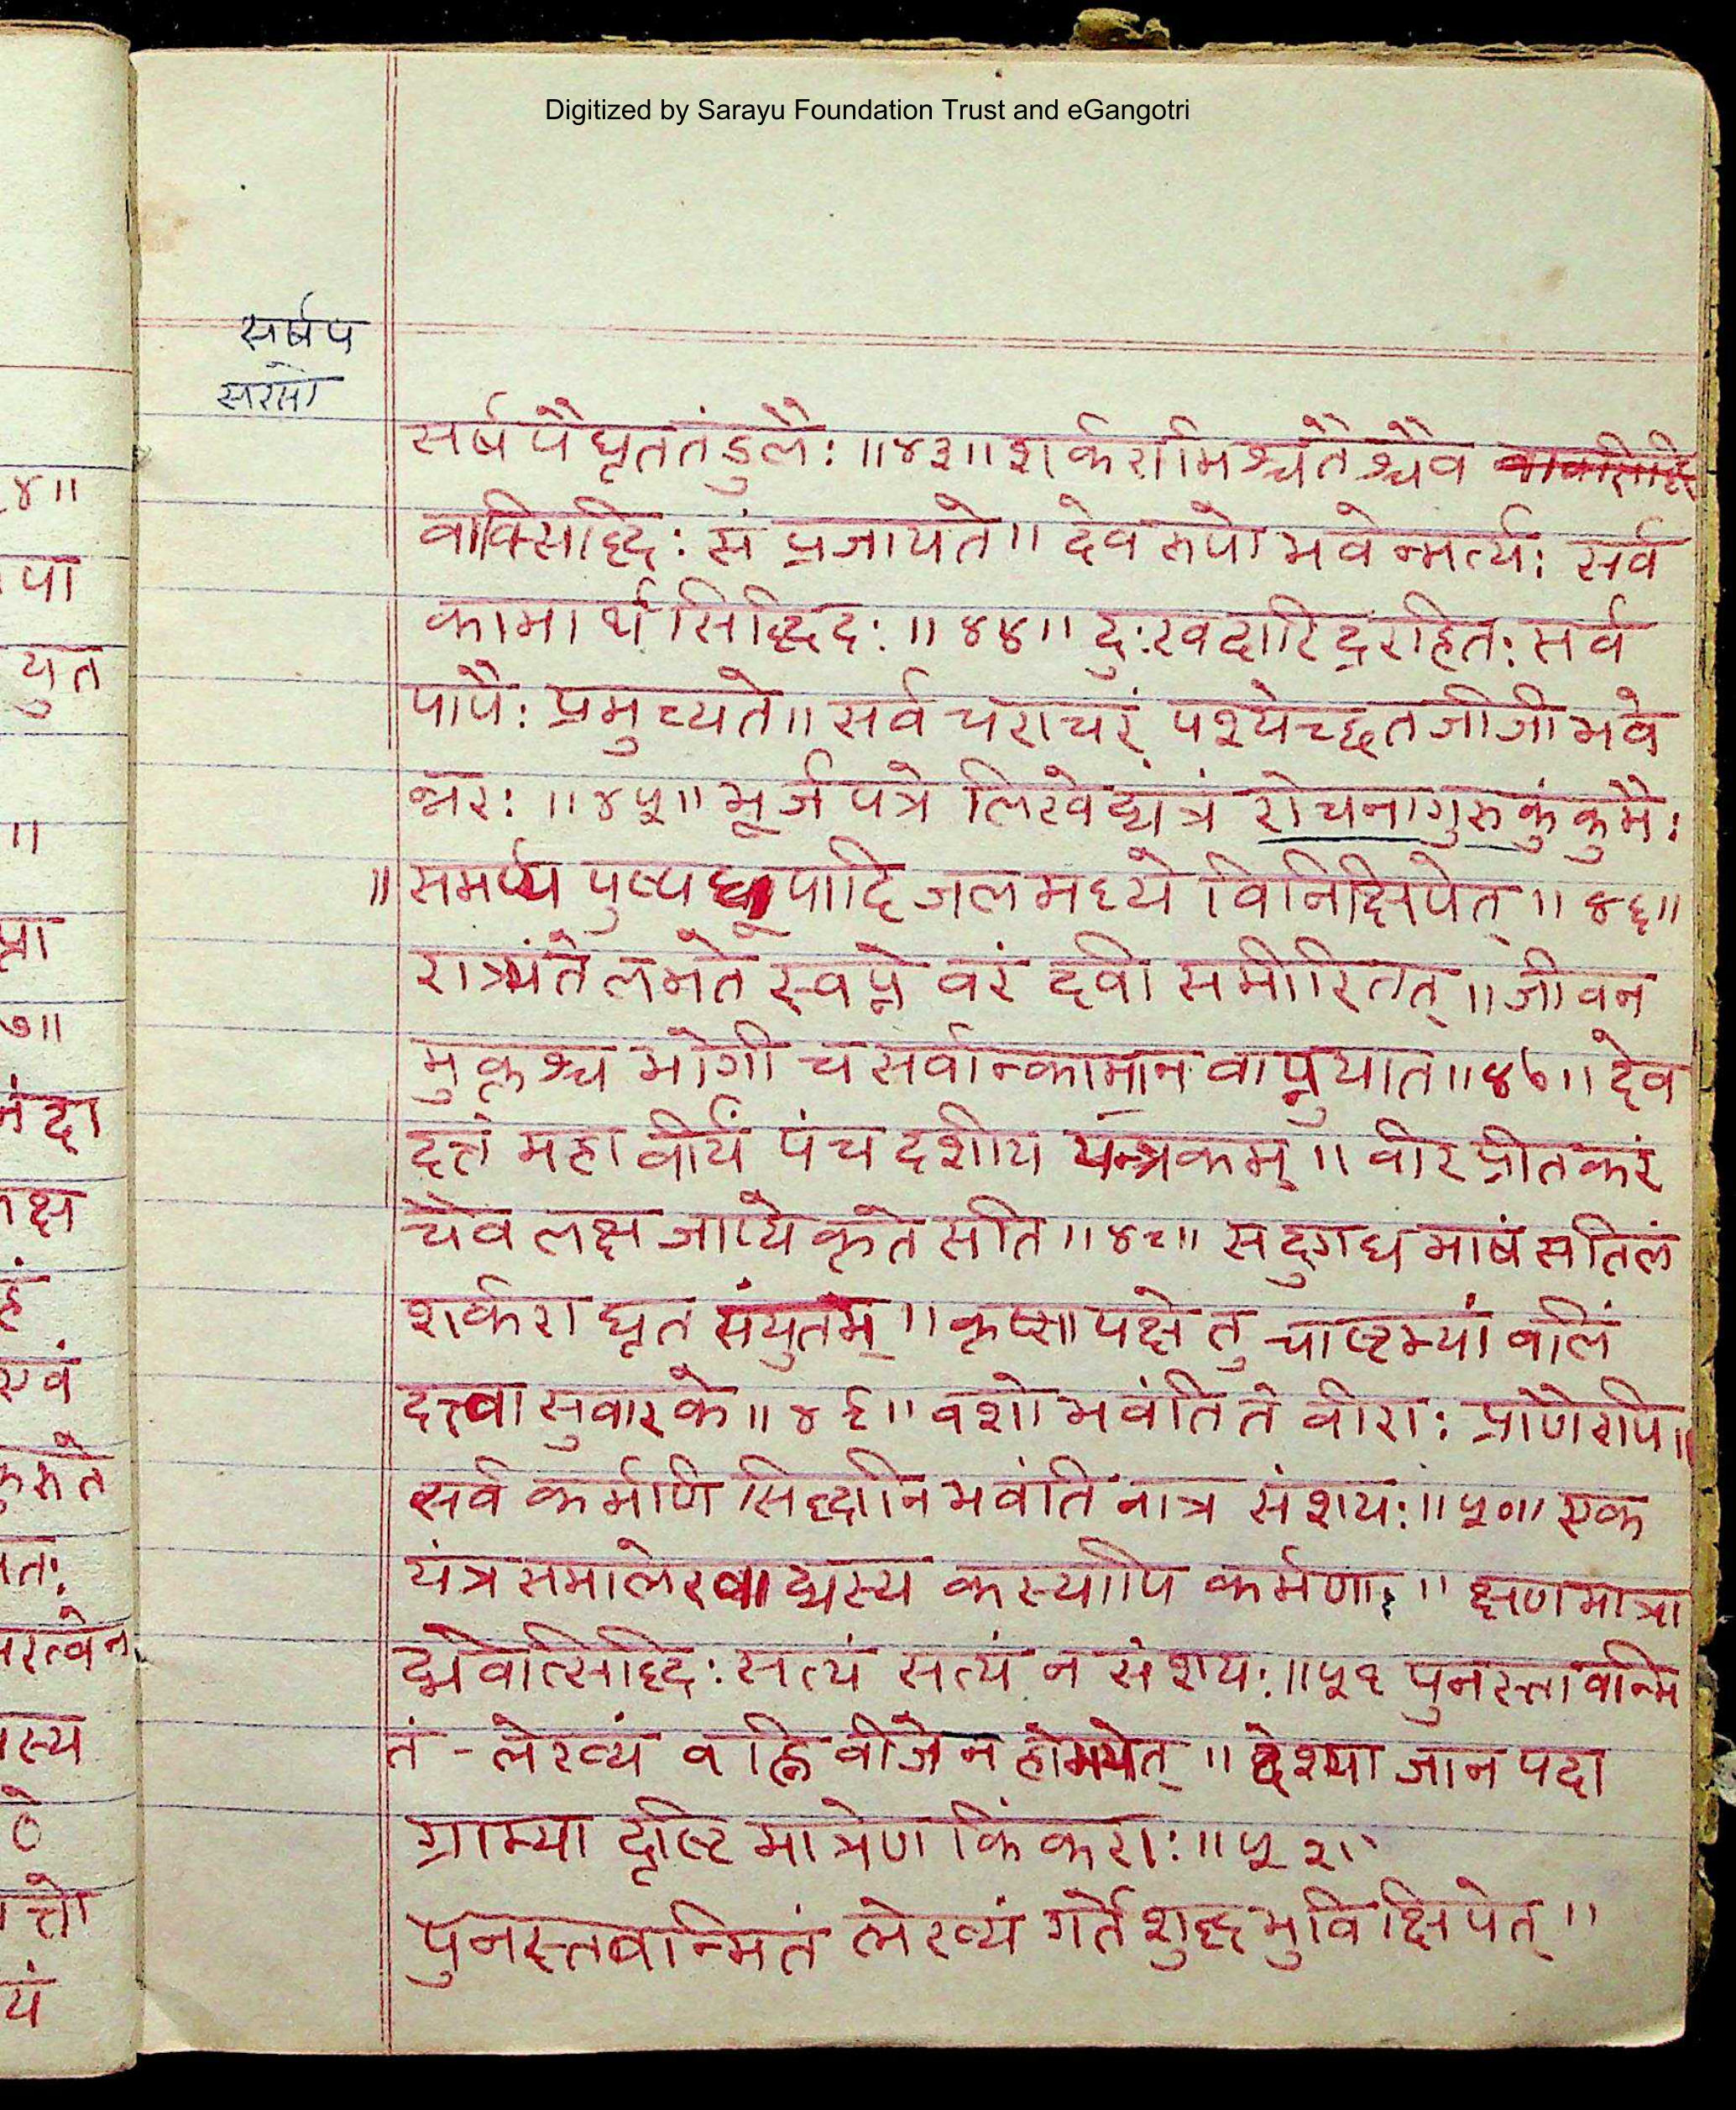 Digitized by Sarayu Foundation Trust and eGangotri
सर्षप
सरसो
सर्षपैघृततंडुलै: ॥४३॥ शर्करामिश्चतैश्चैव
वाक्सिद्धि: संप्रजायते॥ देवरुपो भवेन्मर्त्य: सर्व
कामार्थ सिद्धिद: ॥४४॥ दु:खदारिद्ररहित: सर्व
पापै: प्रमुच्यते॥ सर्व चराचरं पश्येच्छतजीजी भवे
न्नर: ॥४५॥ भूर्जपत्रे लिखेद्यंत्रं रोचनागुरुकुंकुमै:
॥ समर्प्य पुष्पधूपादि जलमध्ये विनिक्षिपेत् ॥४६॥
रात्र्यंते लभते स्वप्ने वरं दवी समीरितत् ॥ जीवन
मुक्तश्च भोगी च सर्वान्कामानवाप्नुयात॥४७॥ देव
दत्तं महावीर्यं पंचदशीय यन्त्रकम् ॥ वीरप्रीतकरं
चैव लक्ष जाप्ये कृते सति ॥४८॥ सदुग्धमाषं सतिलं
शर्कराघृत संयुतम् ॥ कृष्णपक्षे तु चाष्टम्यां बलिं
दत्त्वा सुवारके॥४९॥ वशी भवंति ते वीरा: प्राणैरपि॥
सर्व कर्माणि सिद्धानि भवंति नात्र संशय: ॥५०॥ एक
यंत्र समालेखाद्यस्य कस्यापि कर्मणा: ॥ क्षणमात्रा
द्भवेत्सिद्धि: सत्यं सत्यं न संशय: ॥५१ पुनस्तावन्मि
तं - लेख्यं वह्निवीजेन होमयेत् ॥ देश्या जानपदा
ग्राम्या दृष्टिमात्रेण किंकरा: ॥५२॥
पुनस्तवान्मितं लेख्यं गर्ते शुद्धभुवि क्षिपेत् ॥